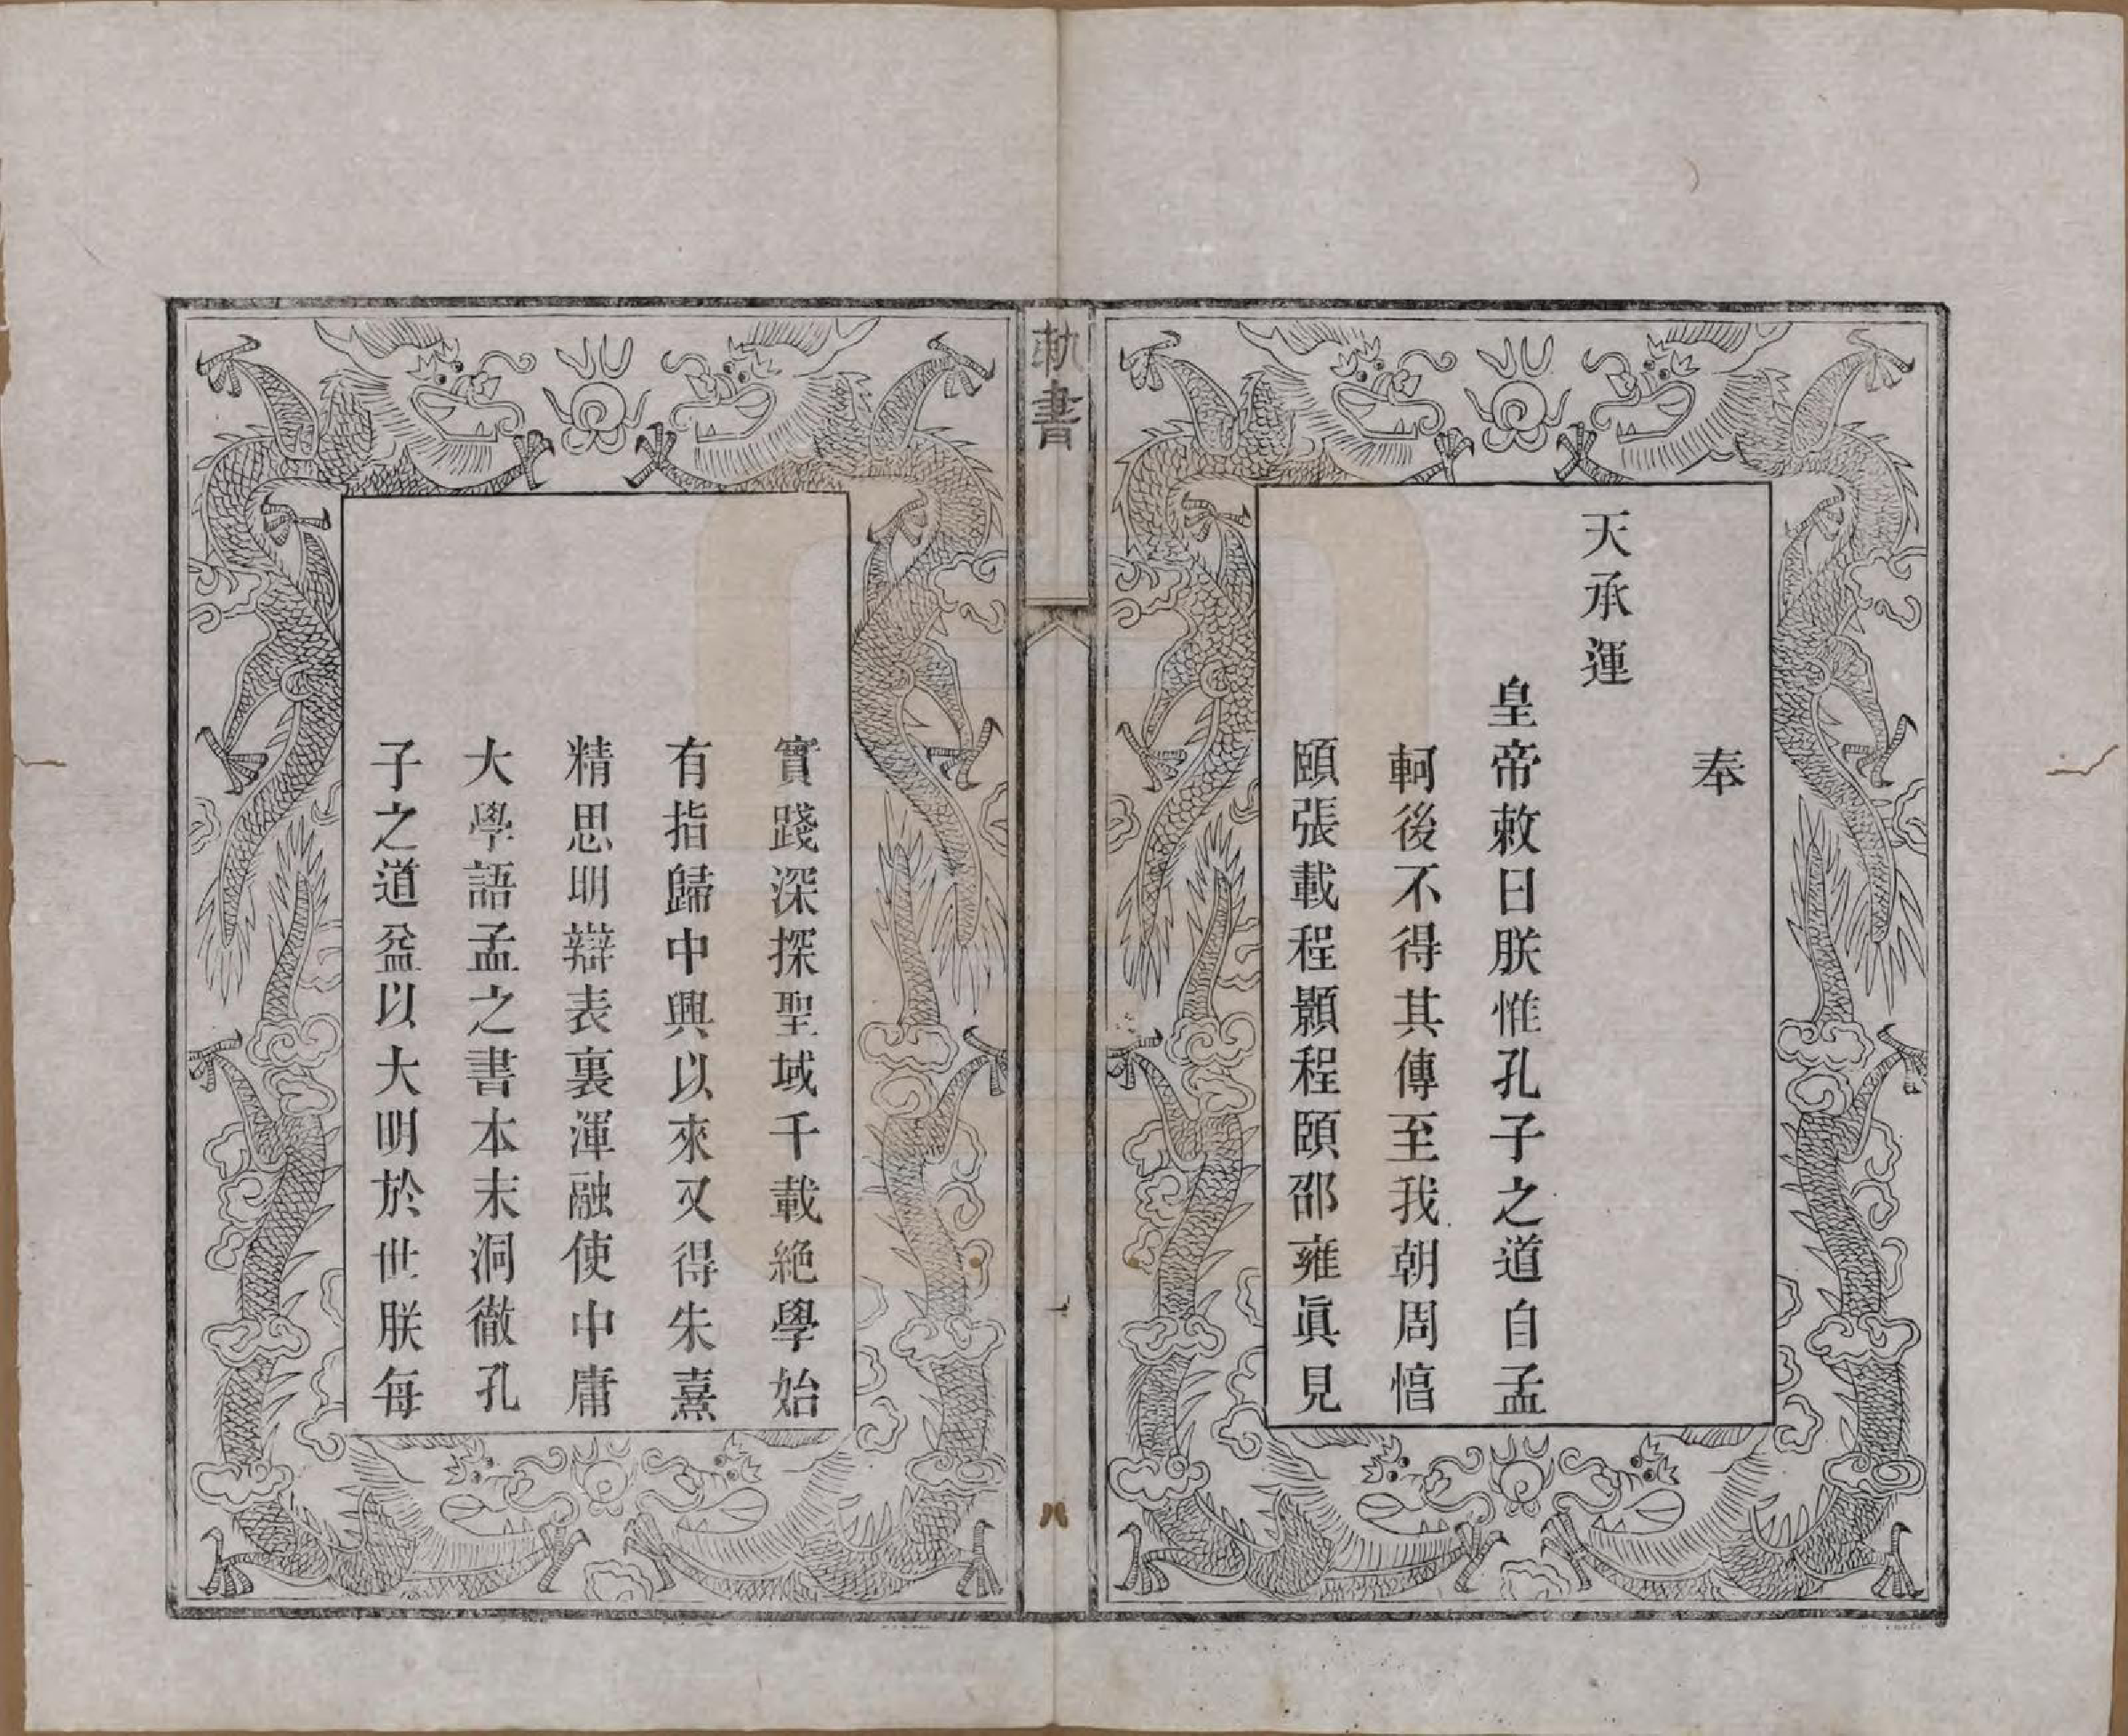 奉
天承運
皇帝敕曰朕惟孔子之道自孟
軻後不得其傳至我朝周㥫
頤張載程顥程頤邵雍眞見
勅書
一
八
實踐深探聖域千載絶學始
有指歸中興以來又得朱熹
精思明辯表裏渾融使中庸
大學語孟之書本末洞徹孔
子之道益以大明於世朕每